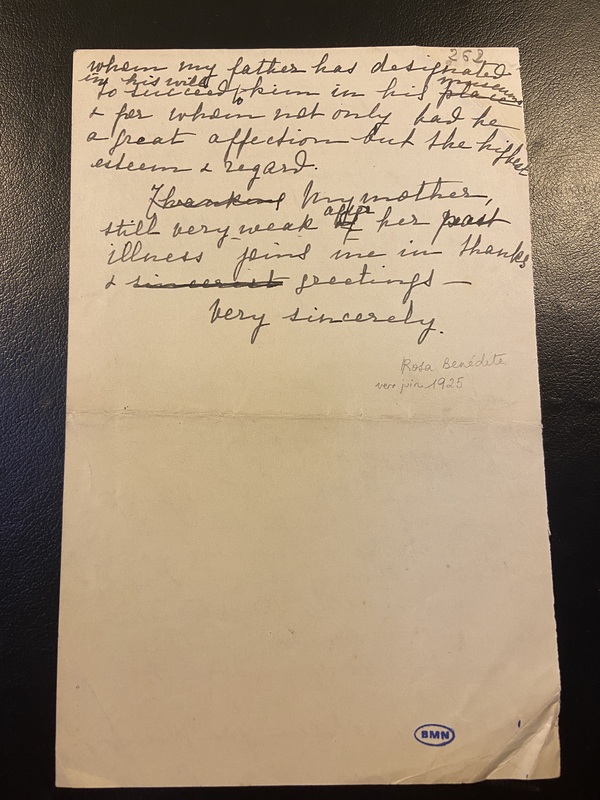 263
whom my father has designated
in his will museum
to succeed to him in his place
& for whom not only had he
a great affection but the highest
esteem & regard.
Thanking My mother,
after
still very weak of her past
illness joins me in thanks
& sincerest greetings —
Very sincerely.
Rosa Benédite
vers juin 1925
BMN